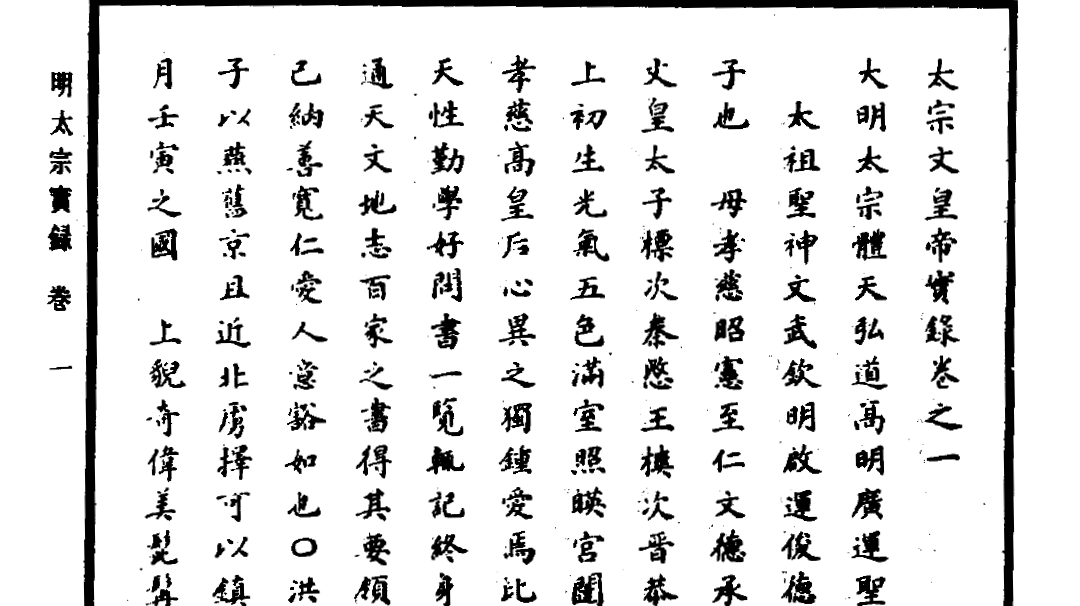 太宗文皇帝實錄卷之一
大明太宗體天弘道高明廣運聖
太祖聖神文武欽明啟運俊德
子也 母孝慈昭憲至仁文德承
文皇太子標次秦愍王樉次晉恭
上初生光氣五色滿室照暎宮闥
孝慈高皇后心異之獨鍾愛焉比
天性勤學好問書一覽輒記終身
通天文地志百家之書得其要領
己納善寬仁愛人意豁如也〇洪
子以燕舊京且近北虜擇可以鎮
月壬寅之國 上貌奇偉美髭髯
明太宗實録 卷一